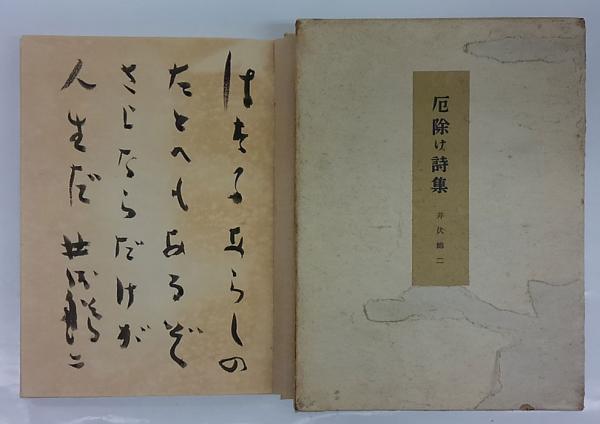 厄除け詩集
井伏鱒二
はなにあらしの
たとへもあるぞ
さよならだけが
人生だ 井伏鱒二